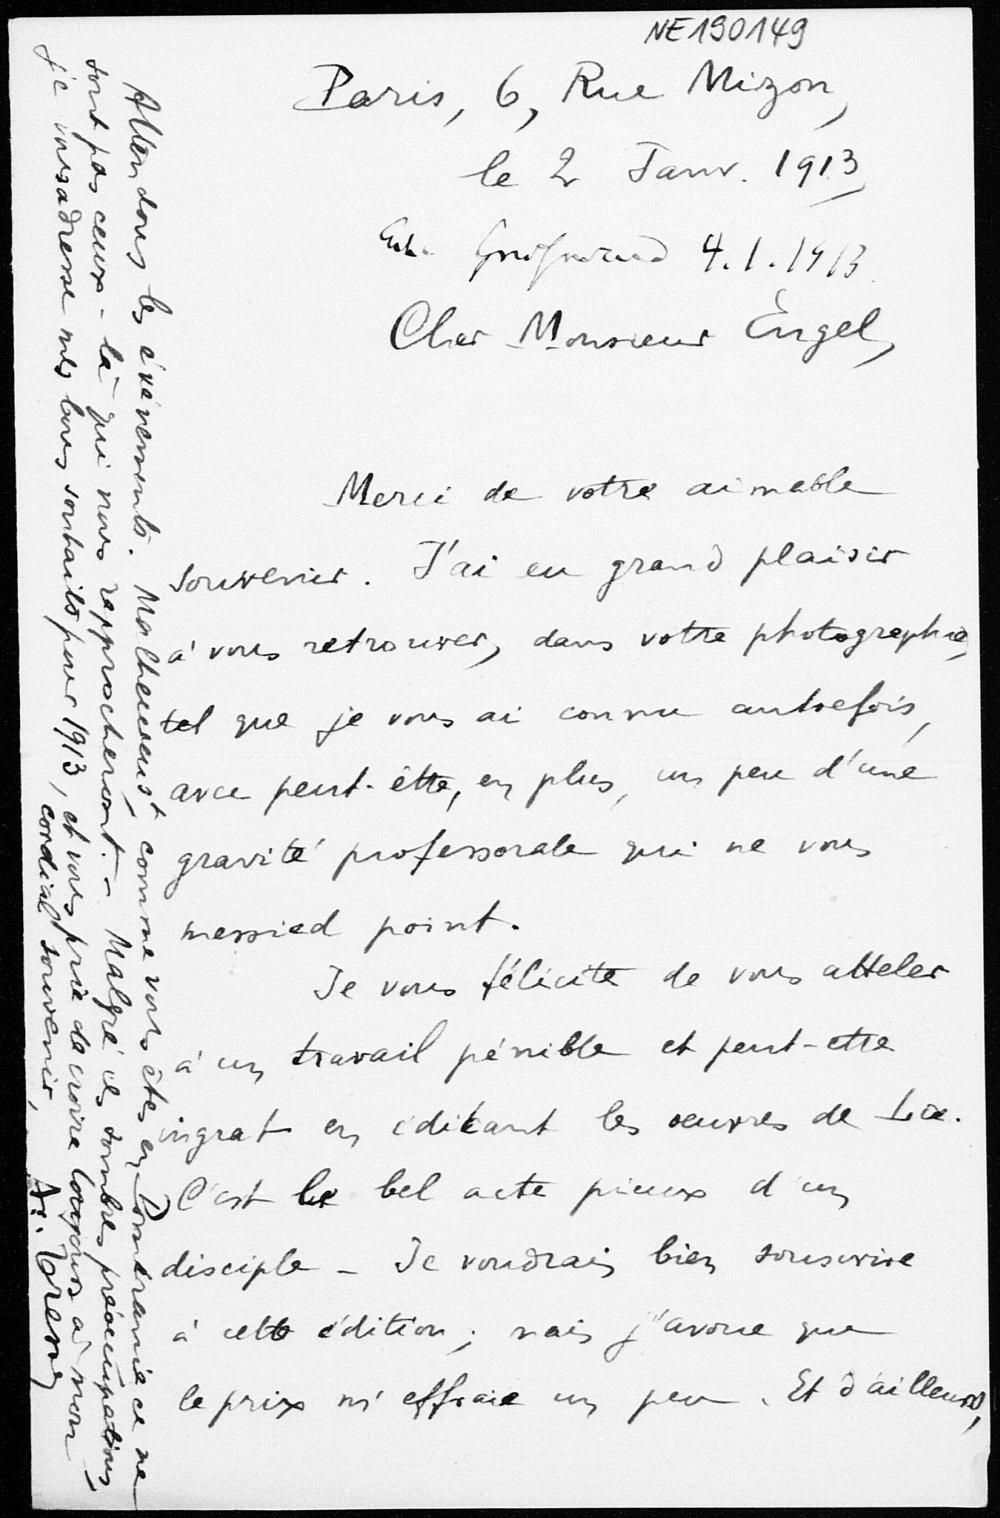 NE190149
Paris, 6, Rue Mizon,
le 2 Janv. 1913
4.1.1913.
Cher Monsieur Engel,
Merci de votre aimable
souvenir. J'ai eu grand plaisir
à vous retrouver, dans votre photographie,
tel que je vous ai connu autrefois,
avec peut-être, en plus, un peu d'une
gravité professorale qui ne vous
messied point.
Je vous félicite de vous atteler
à un travail pénible et peut-etre
ingrat en éditant les œuvres de Lie.
C'est le bel acte pieux d'un
disciple – Je voudrais bien souscrire
à cette édition ; mais j'avoue que
le prix m'effraie un peu. Et d'ailleurs,
Attendons les événements. Malheureust, comme vous êtes en Poméranie ce ne
sont pas ceux-là qui nous rapprocheront. – Malgré ces sombres préoccupations,
je vous adresse mes bons souhaits pour 1913, et vous prie de croire toujours à mon
cordial souvenir,
Ar. Tresse